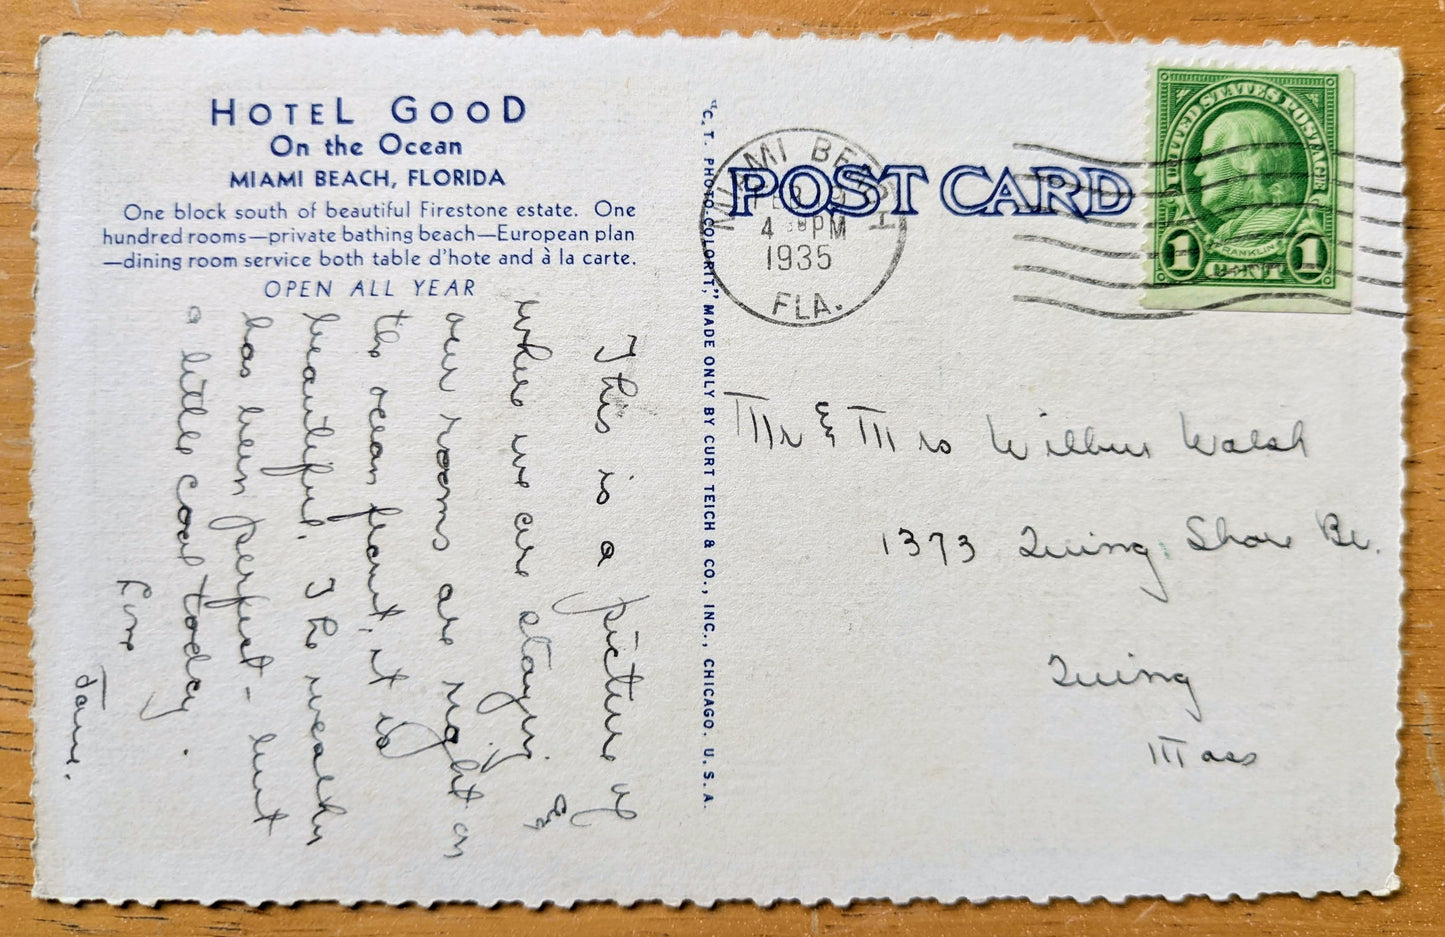 HOTEL GOOD
On the Ocean
MIAMI BEACH, FLORIDA
One block south of beautiful Firestone estate. One
hundred rooms—private bathing beach—European plan
—dining room service both table d'hote and à la carte.
OPEN ALL YEAR
This is a picture of
where we are staying.
our rooms are right on
the ocean front, it is
beautiful. The weather
has been perfect - but
a little cool today.
Love
Jane.
"C. T. PHOTO-COLORIT," MADE ONLY BY CURT TEICH & CO., INC., CHICAGO. U. S. A.
POST CARD
MIAMI BEACH
4 30 PM
1935
FLA.
UNITED STATES POSTAGE
FRANKLIN
1 1
Mr & Mrs Wilbur Walsh
1373 Quincy Shore Bv.
Quincy
Mass